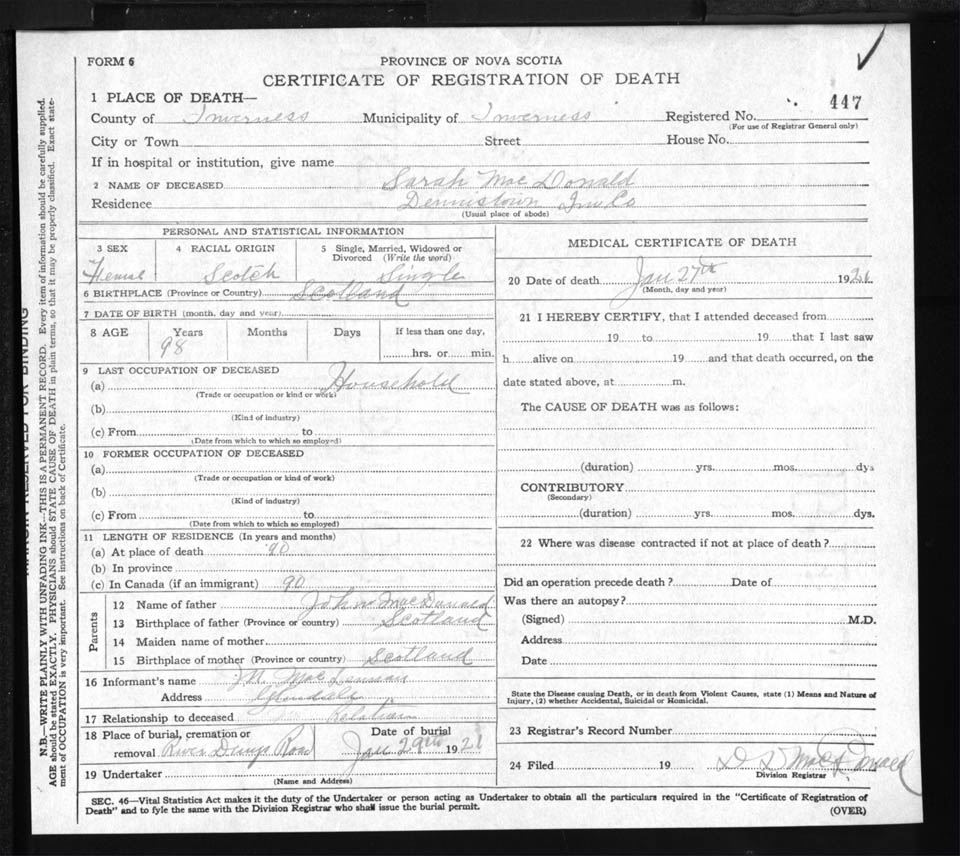 FORM 6
PROVINCE OF NOVA SCOTIA
CERTIFICATE OF REGISTRATION OF DEATH
447
1 PLACE OF DEATH—
County of Inverness Municipality of Inverness Registered No.
(For use of Registrar General only)
City or Town Street House No.
If in hospital or institution, give name
2 NAME OF DECEASED Sarah MacDonald
Residence Dennistown Inv Co
(Usual place of abode)
PERSONAL AND STATISTICAL INFORMATION
3 SEX 4 RACIAL ORIGIN 5 Single, Married, Widowed or
Divorced (Write the word)
Scotch Single
6 BIRTHPLACE (Province or Country) Scotland
7 DATE OF BIRTH (month, day and year)
8 AGE Years Months Days If less than one day,
98
hrs. or min.
9 LAST OCCUPATION OF DECEASED
(a) Household
(Trade or occupation or kind or work)
(b)
(Kind of industry)
(c) From to
(Date from which to which so employed)
10 FORMER OCCUPATION OF DECEASED
(a)
(Trade or occupation or kind of work)
(b)
(Kind of industry)
(c) From to
(Date from which to which so employed)
11 LENGTH OF RESIDENCE (In years and months)
(a) At place of death 90
(b) In province
(c) In Canada (if an immigrant) 90
Parents
12 Name of father John MacDonald
13 Birthplace of father (Province or country) Scotland
14 Maiden name of mother
15 Birthplace of mother (Province or country) Scotland
16 Informant's name
Address Glendale
17 Relationship to deceased Relation
18 Place of burial, cremation or Date of burial
removal River Road Jan 29th 192
19 Undertaker
(Name and Address)
MEDICAL CERTIFICATE OF DEATH
20 Date of death Jan 27th 19
(Month, day and year)
21 I HEREBY CERTIFY, that I attended deceased from
19 to 19 that I last saw
h alive on 19 and that death occurred, on the
date stated above, at m.
The CAUSE OF DEATH was as follows:
(duration) yrs. mos. dys
CONTRIBUTORY
(Secondary)
(duration) yrs. mos. dys.
22 Where was disease contracted if not at place of death?
Did an operation precede death? Date of
Was there an autopsy?
(Signed) M.D.
Address
Date
State the Disease causing Death, or in death from Violent Causes, state (1) Means and Nature of
Injury, (2) whether Accidental, Suicidal or Homicidal.
23 Registrar's Record Number
24 Filed 19 D D MacDonald
Division Registrar
SEC. 46—Vital Statistics Act makes it the duty of the Undertaker or person acting as Undertaker to obtain all the particulars required in the "Certificate of Registration of
Death" and to fyle the same with the Division Registrar who shall issue the burial permit.
(OVER)
MARGIN RESERVED FOR BINDING
N.B.—WRITE PLAINLY WITH UNFADING INK—THIS IS A PERMANENT RECORD. Every item of information should be carefully supplied.
AGE should be stated EXACTLY. PHYSICIANS should STATE CAUSE OF DEATH in plain terms, so that it may be properly classified. Exact state-
ment of OCCUPATION is very important. See instructions on back of Certificate.